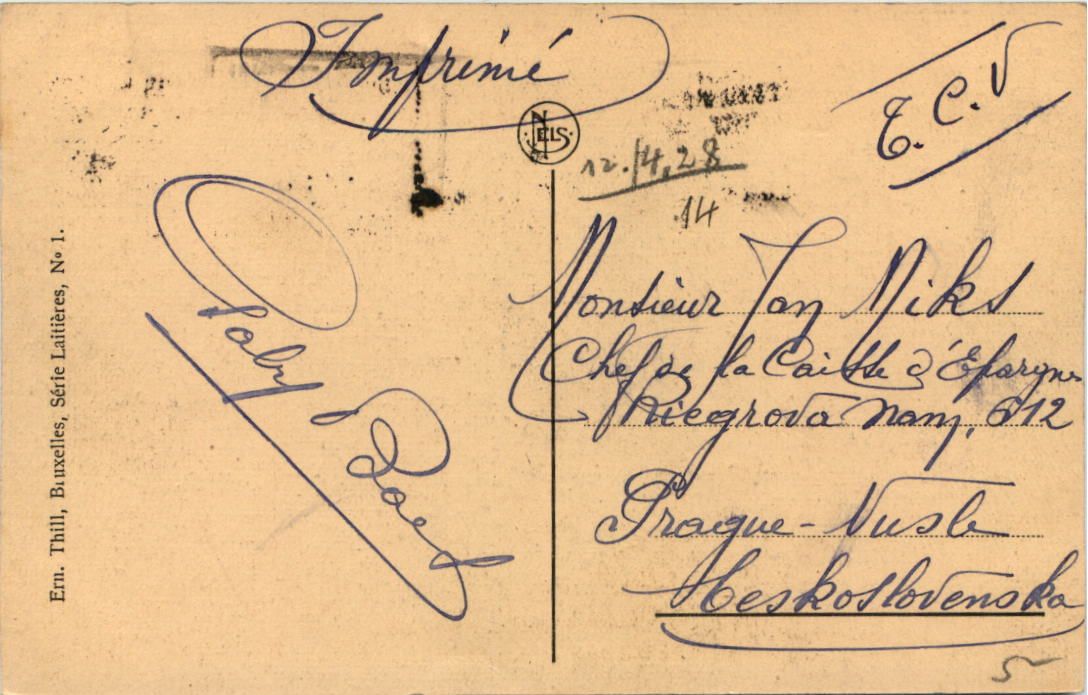 Imprimé
T.C.V
NELS
12./4.28
14
Monsieur Jan Miks
Chef de la Caisse d'Epargne
Riegrova nam, 612
Prague - Nusle
Československa
Gaby Baert
Ern. Thill, Bruxelles, Série Laitières, Nº 1.
5